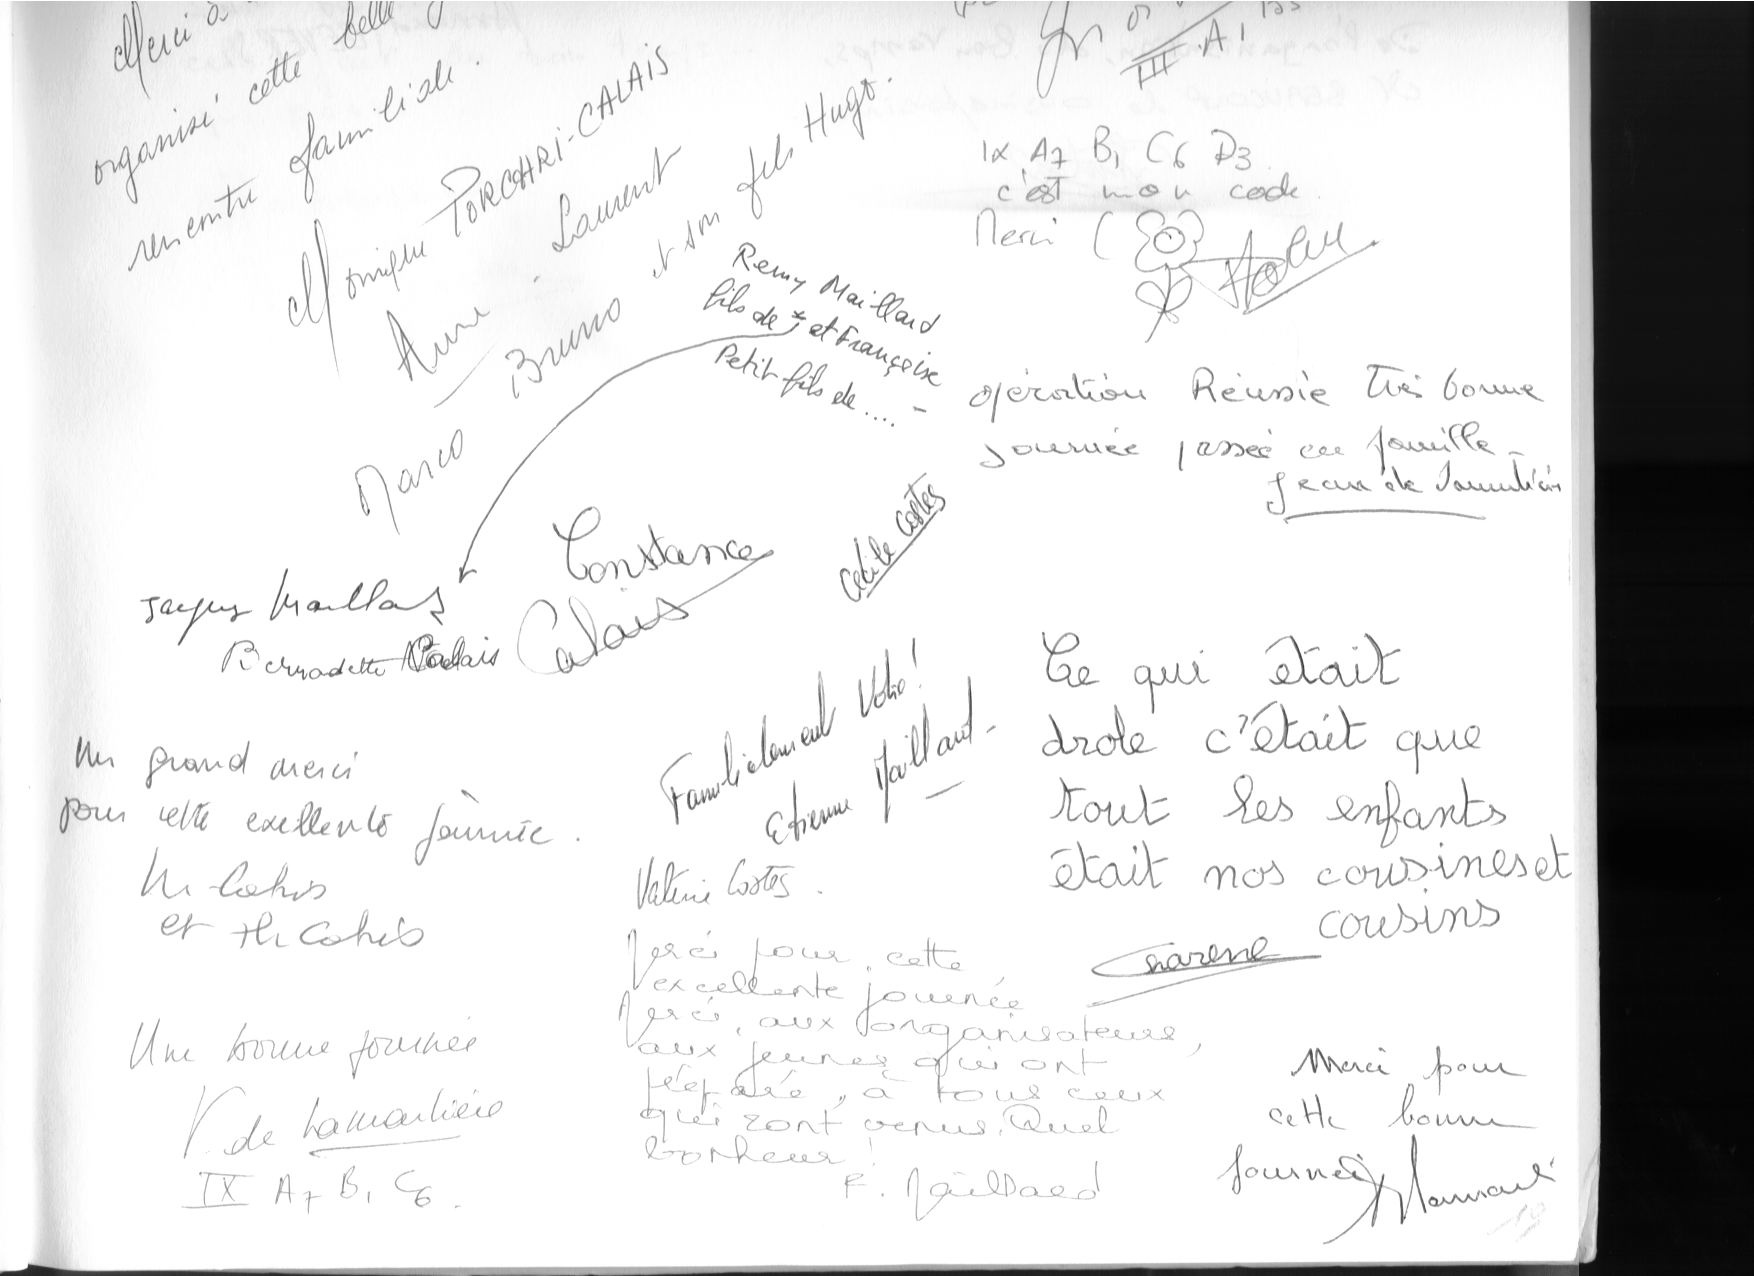 Merci à
organisé cette belle
rencontre familiale.
Monique PORCHRI-CALAIS
Anne - Laurent
Bruno et son fils Hugo.
Marco
III A1
IX A7 B1 C6 D3
c'est mon code.
Merci (
Remy Maillard
fils de * et Françoise
Petit fils de .... -
opération Réussie Très bonne
journée passée en famille -
Jean de Lamarlière
Cécile Costes
Constance
Calais
Jacques Maillard
Bernadette Calais
Ce qui était
drole c'était que
tout les enfants
était nos cousines et
cousins
Charene
Familialement Votre!
Etienne Maillard -
Un grand merci
pour cette exellente journée.
et
Valérie Costes.
Merci pour cette
excellente journée
Merci, aux organisateurs,
aux jeunes qui ont
préparé, à tous ceux
qui sont venus. Quel
bonheur!
F. Maillard
Une bonne journée
V. de Lamarlière
IX A7 B1 C6.
Merci pour
cette bonne
journée